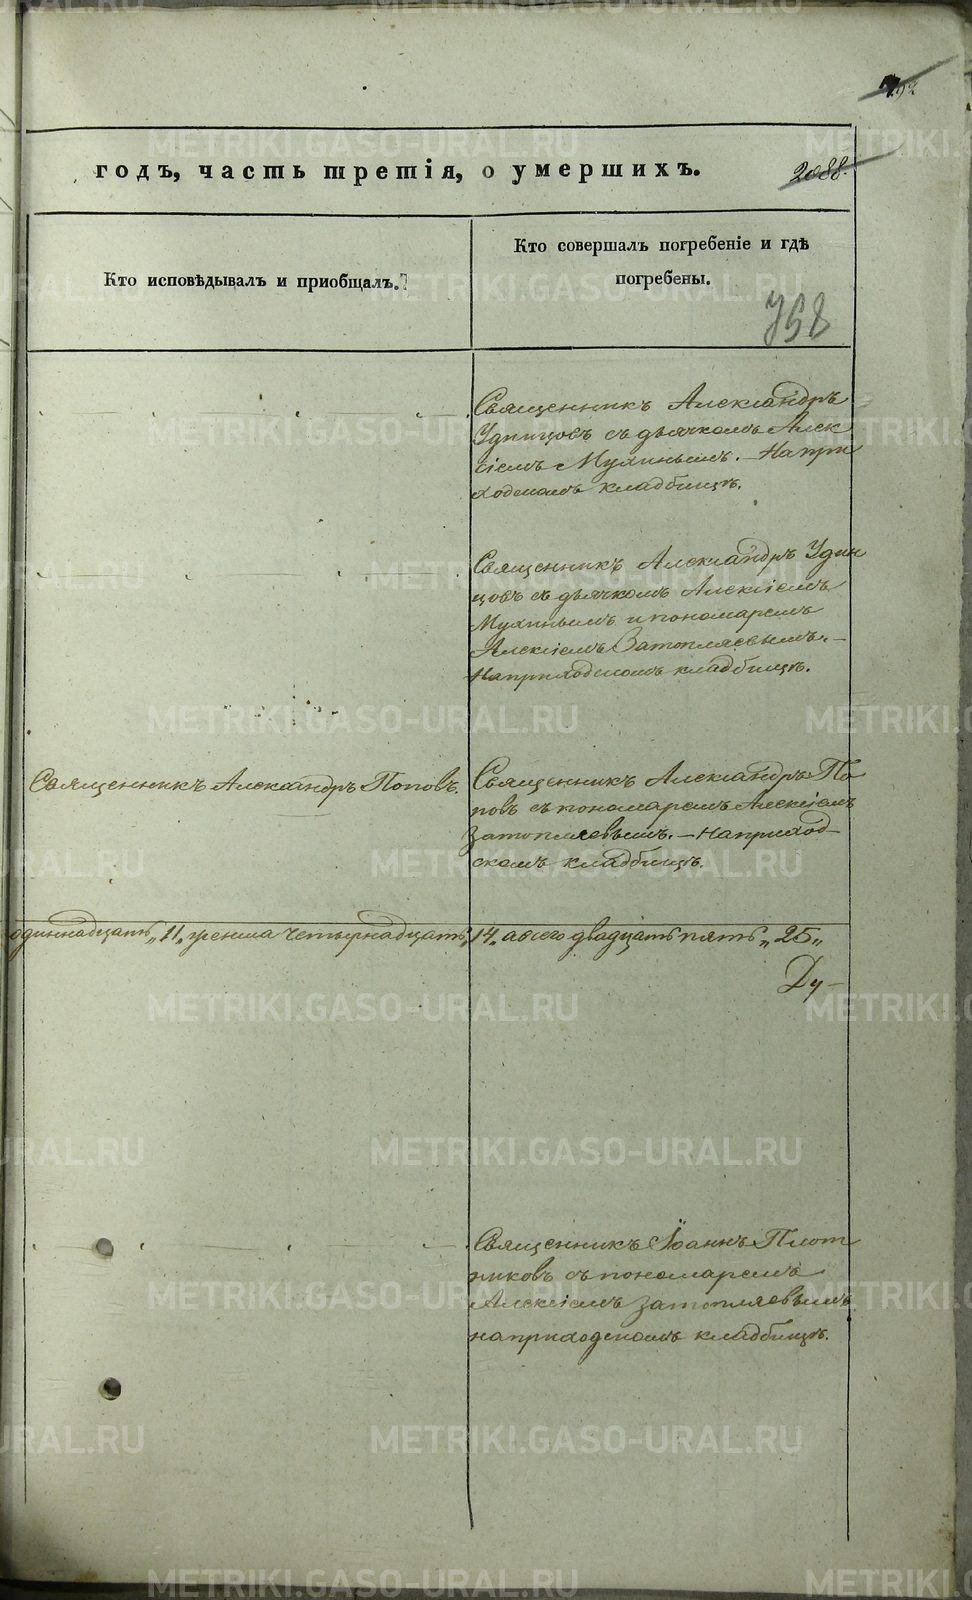 годъ, часть третія, о умершихъ.
2088.
Кто исповѣдывалъ и приобщалъ.
Кто совершалъ погребеніе и гдѣ
погребены.
758
Священникъ Александръ
Удинцовъ съ дьячкомъ Алек
сіемъ Мухинымъ. - На при
ходскомъ кладбищѣ.
Священникъ Александръ Удин
цовъ съ дьячкомъ Алексіемъ
Мухинымъ и пономаремъ
Алексіемъ Затопляевымъ. -
На приходскомъ кладбищѣ.
Священникъ Александръ Поповъ.
Священникъ Александръ По
повъ съ пономаремъ Алексіемъ
Затопляевымъ. - На приход-
скомъ кладбищѣ.
одиннадцать „11„ женска четырнадцать „14„ а всего двадцать пять „25„
Ду-
Священникъ Іоаннъ Плот
никовъ съ пономаремъ
Алексіемъ Затопляевымъ
на приходскомъ кладбищѣ.
METRIKI.GASO-URAL.RU